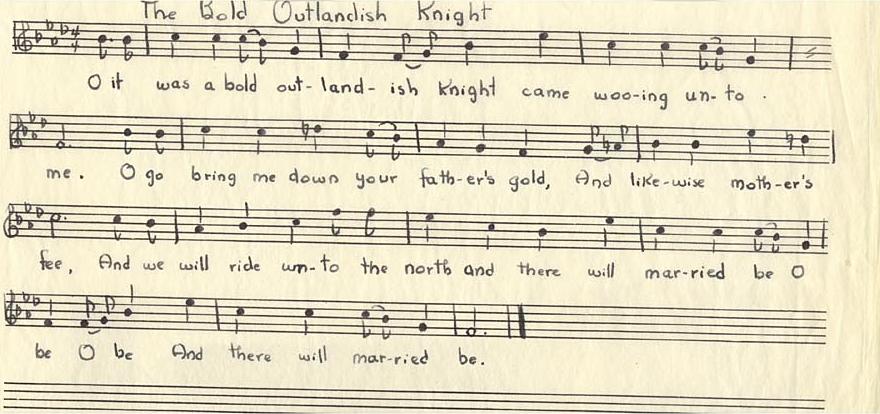 The Bold Outlandish Knight
O it was a bold out-land-ish Knight came woo-ing un-to
me. O go bring me down your fath-er's gold, And like-wise moth-er's
fee, And we will ride un-to the north and there will mar-ried be O
be O be And there will mar-ried be.